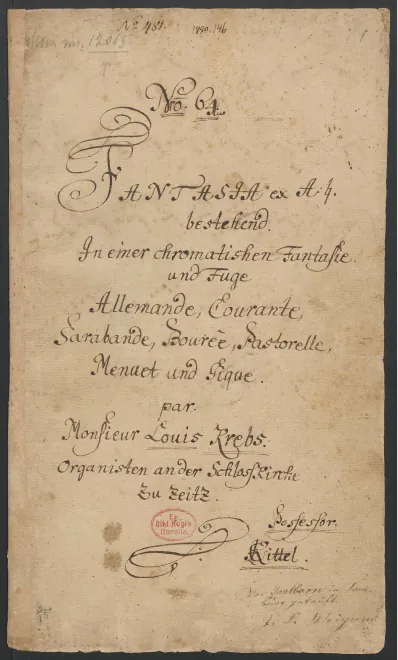 No 481.
1890.146
Mus. ms. 12013
No. 64.
FANTASIA ex A.♮.
bestehend.
In einer chromatischen Fantasie.
und Fuge
Allemande, Courante,
Sarabande, Bourèe, Pastorelle,
Menuet und Gique.
par.
Monsieur Louis Krebs.
Organisten an der Schlosskirche
zu Zeitz.
Ex
Bibl. Regia
Berolin.
Possessor.
Kittel.
in
gekauft.